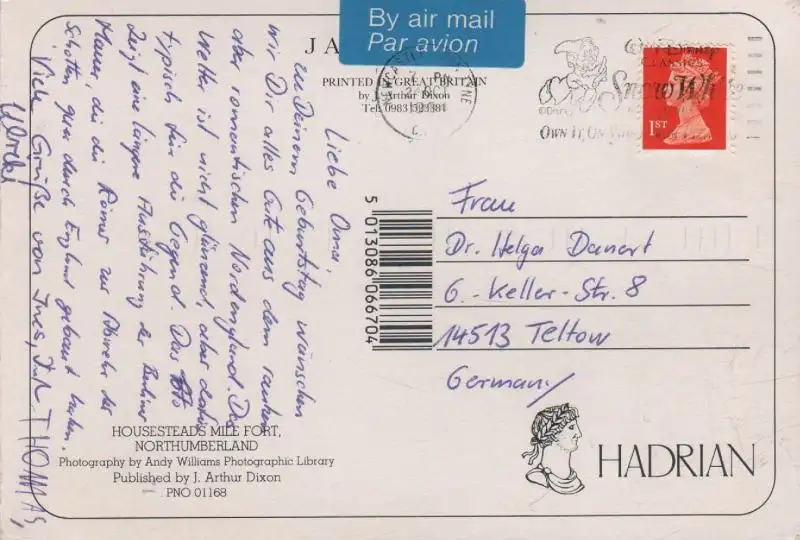 By air mail
Par avion
PRINTED IN GREAT BRITAIN
by J. Arthur Dixon
Tel: 0983 523381
WALT DISNEY
CLASSICS
Snow White
©Disney
OWN IT ON
1ST
Liebe Oma,
zu Deinem Geburtstag wünschen
wir Dir alles Gute aus dem rauhen
aber romantischen Nordengland. Das
Wetter ist nicht glänzend aber dafür
typisch für die Gegend. Das Foto
zeigt eine längere Ausführung der Berliner
Mauer, die die Römer zur Abwehr der
Schotten quer durch England gebaut haben.
Viele Grüße von Ines, THOMAS,
Ulrich
5 013086 066704
Frau
Dr. Helga Danert
G.-Keller-Str. 8
14513 Teltow
Germany
HOUSESTEADS MILE FORT,
NORTHUMBERLAND
Photography by Andy Williams Photographic Library
Published by J. Arthur Dixon
PNO 01168
HADRIAN